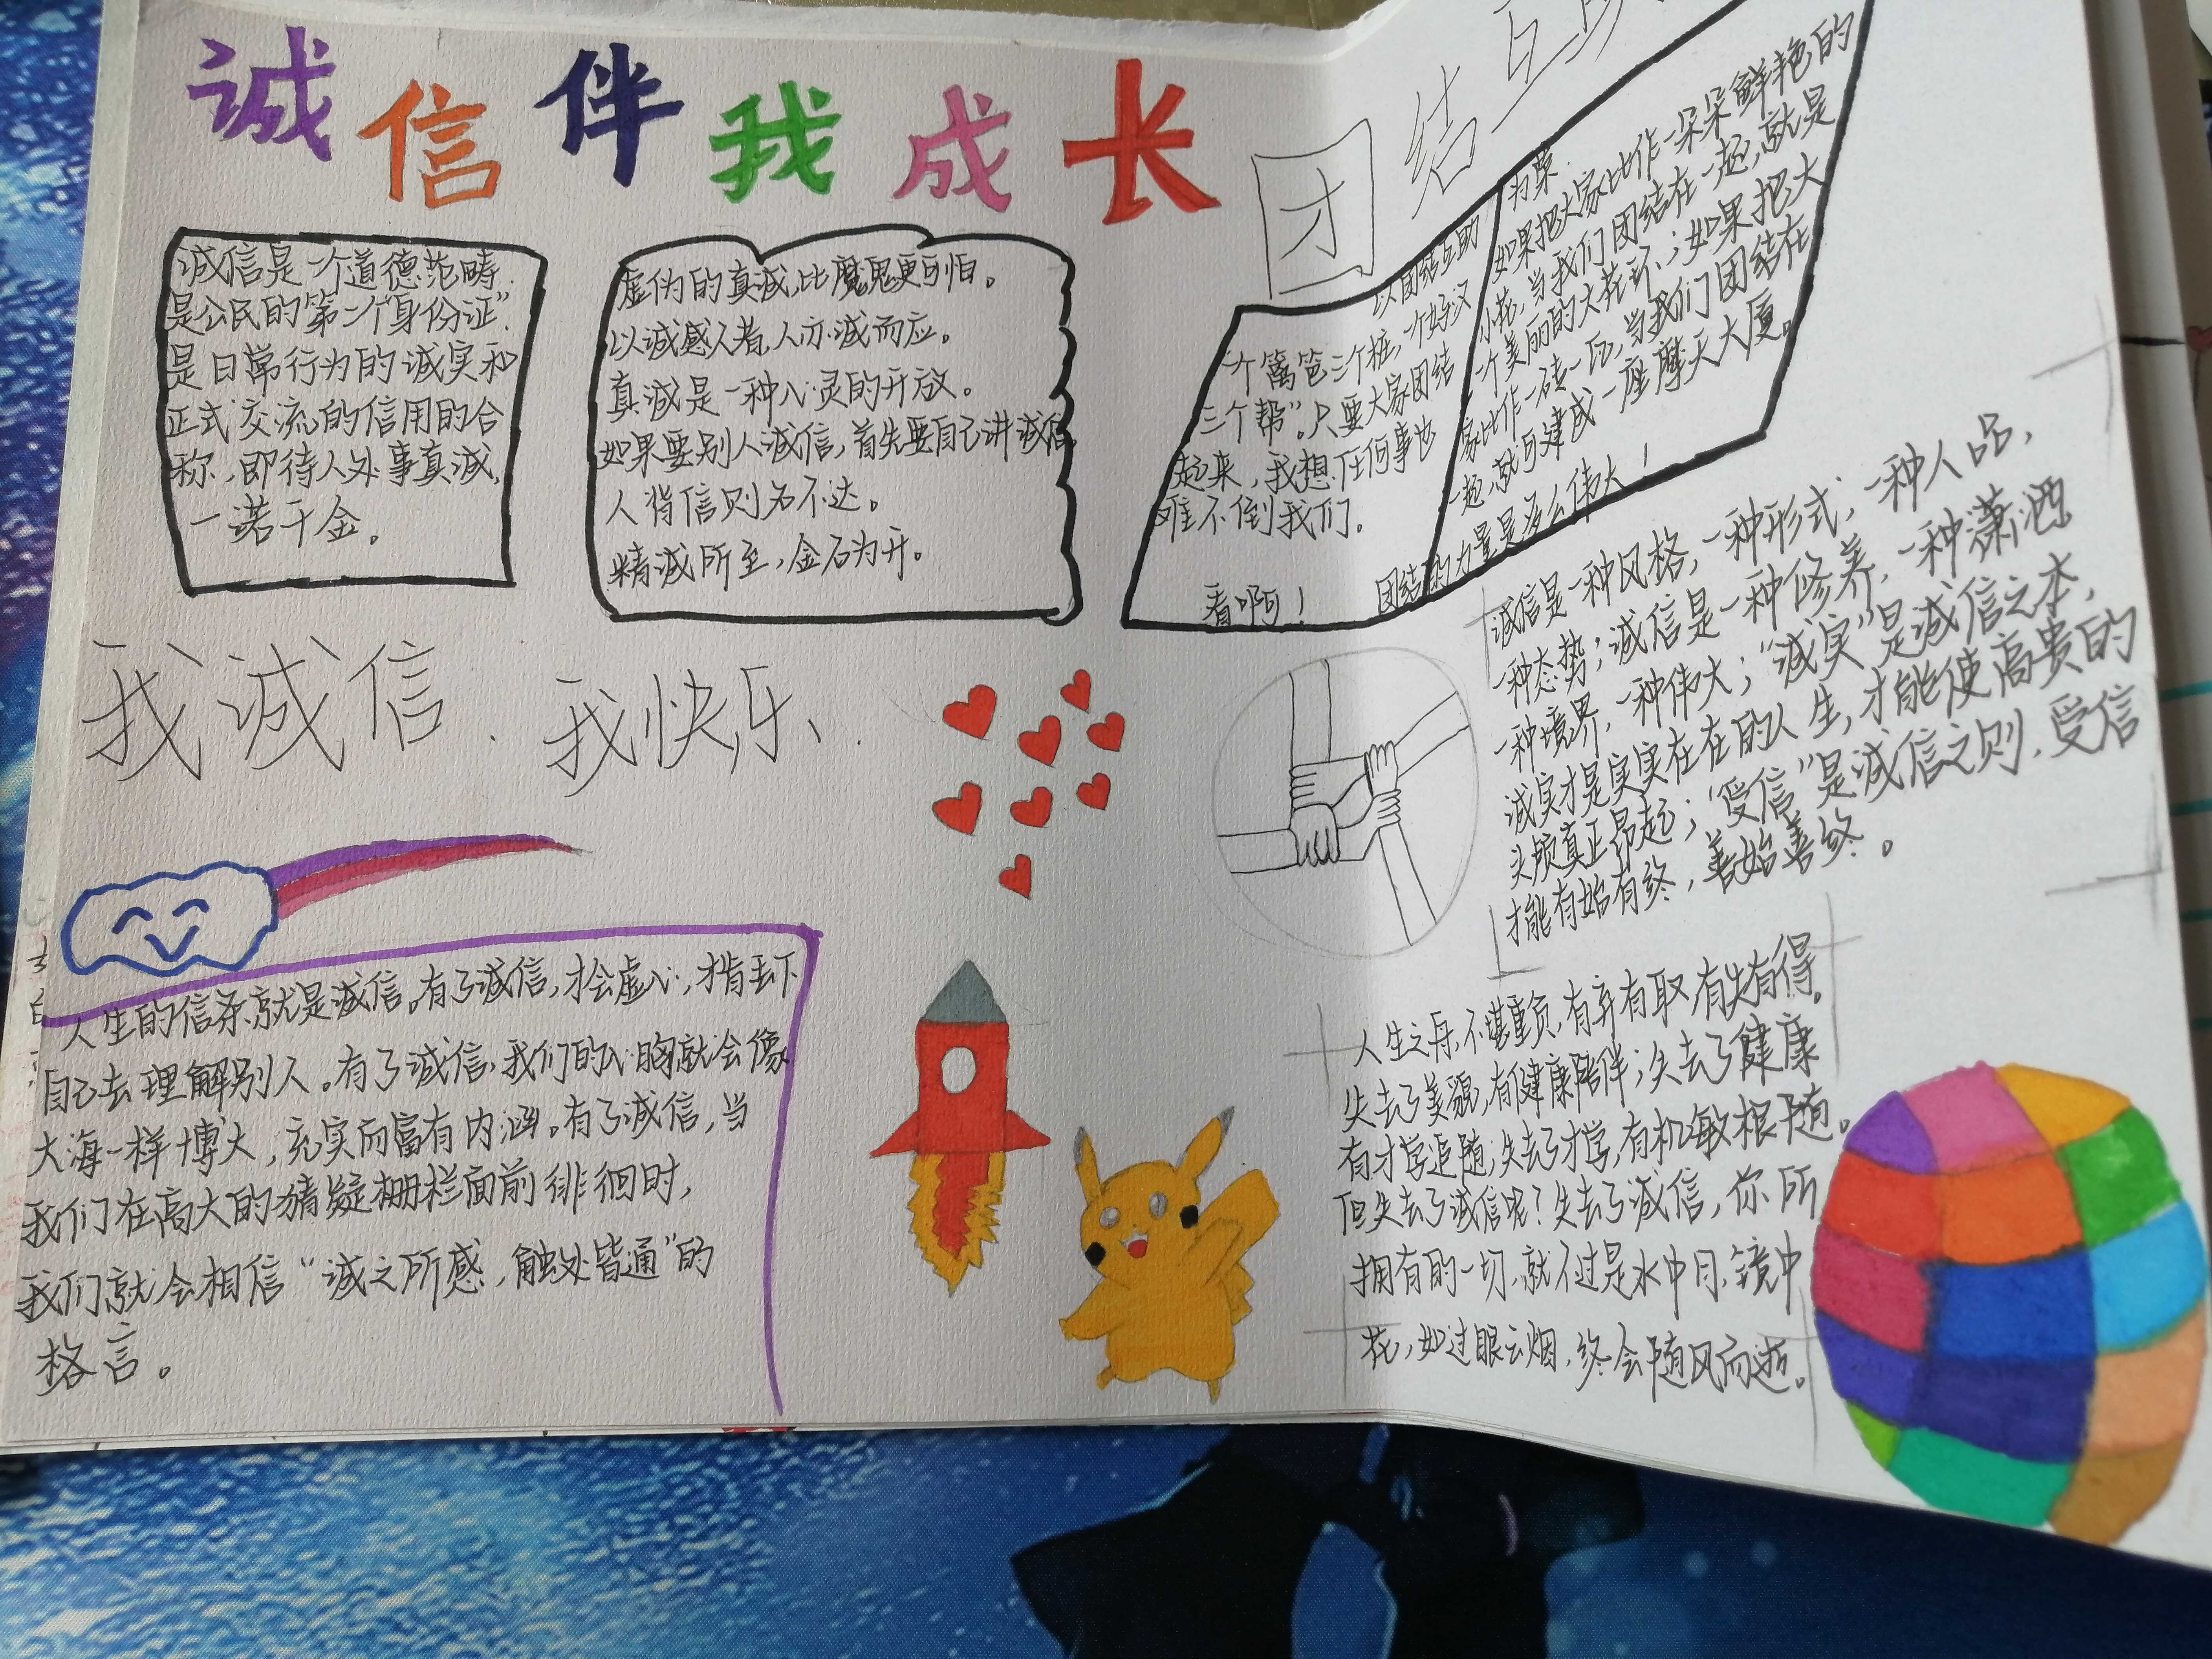 诚信伴我成长
诚信是一个道德范畴,
是公民的“第二个身份证”,
是日常行为的诚实和
正式交流的信用的合
称,即待人处事真诚,
一诺千金。
虚伪的真诚,比魔鬼更可怕。
以诚感人者,人亦诚而应。
真诚是一种心灵的开放。
如果要别人诚信,首先要自己讲诚信
人背信则名不达。
精诚所至,金石为开。
团结互
以团结互助
一个篱笆三个桩,一个好汉
三个帮”。只要大家团结
起来,我想任何事也
难不倒我们。
看啊!
为荣.
如果把大家比作一朵朵鲜艳的
小花,当我们团结在一起,就是
一个美丽的大花环;如果把大
家比作一砖一瓦,当我们团结在
一起,就可建成一座摩天大厦。
团结的力量是多么伟大!
我诚信.我快乐.
诚信是一种风格,一种形式,一种人品,
一种态势;诚信是一种修养,一种潇洒
一种境界,一种伟大;“诚实”是诚信之本,
诚实才是实实在在的人生,才能使高贵的
头颅真正昂起;“受信”是诚信之则,受信
才能有始有终,善始善终。
人生的信条就是诚信。有了诚信,才会虚心,才肯丢下
自己去理解别人。有了诚信,我们的心胸就会像
大海一样博大,充实而富有内涵。有了诚信,当
我们在高大的猜疑栅栏面前徘徊时,
我们就会相信“诚之所感,触处皆通”的
格言。
人生之舟,不堪重负,有弃有取,有失有得。
失去了美貌,有健康陪伴;失去了健康
有才学追随;失去了才学,有机敏根随。
但失去了诚信呢?失去了诚信,你所
拥有的一切,就不过是水中月,镜中
花,如过眼云烟,终会随风而逝。